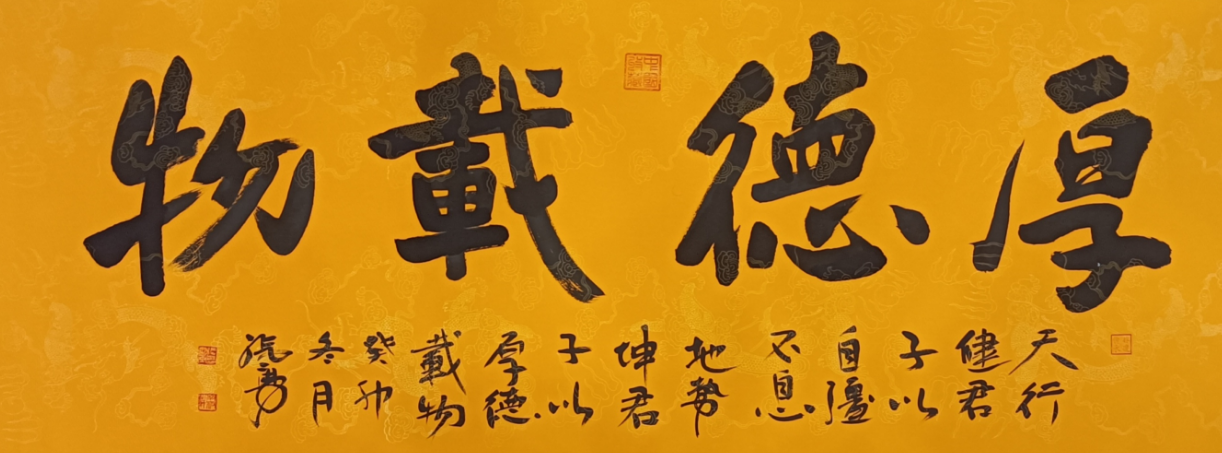 厚德載物
天行
健君
子以
自彊
不息
地勢
坤君
子以
厚德
載物
癸卯
冬月